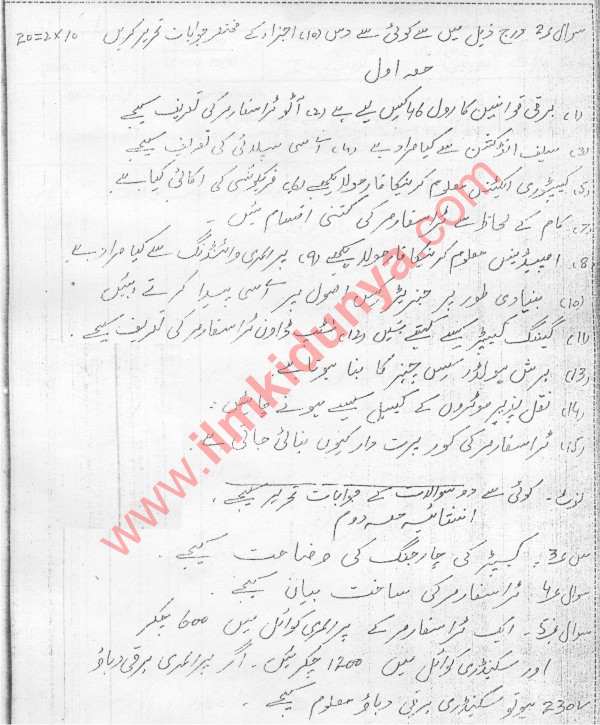 سوال 2؎ درج ذیل میں سے کوئی سے دس (10) اجزاء کے مختصر جوابات تحریر کریں 20=2x10
حصہ اول
(1) برقی قوانین کا رول 46 کس لیے ہے (2) آٹو ٹرانسفارمر کی تعریف کیجیے
(3) سیلف انڈکشن سے کیا مراد ہے (4) اے سی سپلائی کی تعریف کیجیے
(5) کپیسٹو ری ایکٹنس معلوم کرنیکا فارمولا لکھیے (6) فریکوئنسی کی اکائی کیا ہے
(7) کام کے لحاظ سے ٹرانسفارمر کی کتنی اقسام ہیں۔
(8) امپیڈینس معلوم کرنیکا فارمولا لکھیے (9) پرائمری وائنڈنگ سے کیا مراد ہے
(10) بنیادی طور پر جنریٹر کس اصول پر اے سی پیدا کرتے ہیں
(11) گینگ کپیسٹر کسے کہتے ہیں (12) سٹیپ ڈاون ٹرانسفارمر کی تعریف کیجیے۔
(13) برش ہولڈر کس چیز کا بنا ہوتا ہے
(14) نقل پذیر موٹروں کے کیبل کیسے ہونے چاہیں۔
(15) ٹرانسفارمر کی کور پرت دار کیوں بنائی جاتی ہے۔
نوٹ۔ کوئی سے دو سوالات کے جوابات تحریر کیجیے۔
انشائیہ حصہ دوم
س 3؎۔ کپیسٹر کی چارجنگ کی وضاحت کیجیے۔
سوال 4؎۔ ٹرانسفارمر کی ساخت بیان کیجیے۔
سوال 5؎۔ ایک ٹرانسفارمر کے پرائمری کوائل میں 600 چکر
اور سکینڈری کوائل میں 1200 چکر ہیں۔ اگر پرائمری برقی دباؤ
230V ہو تو سکینڈری برقی دباؤ معلوم کیجیے۔
www.ilmkidunya.com